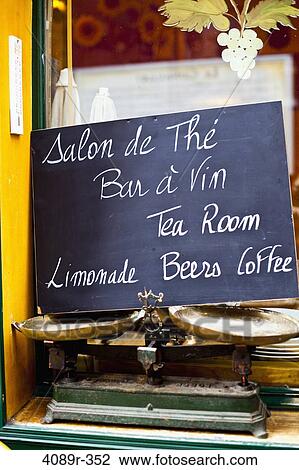 Salon de Thé
Bar à Vin
Tea Room
Limonade Beers Coffee
FOTOSEARCH
4089r-352 www.fotosearch.com